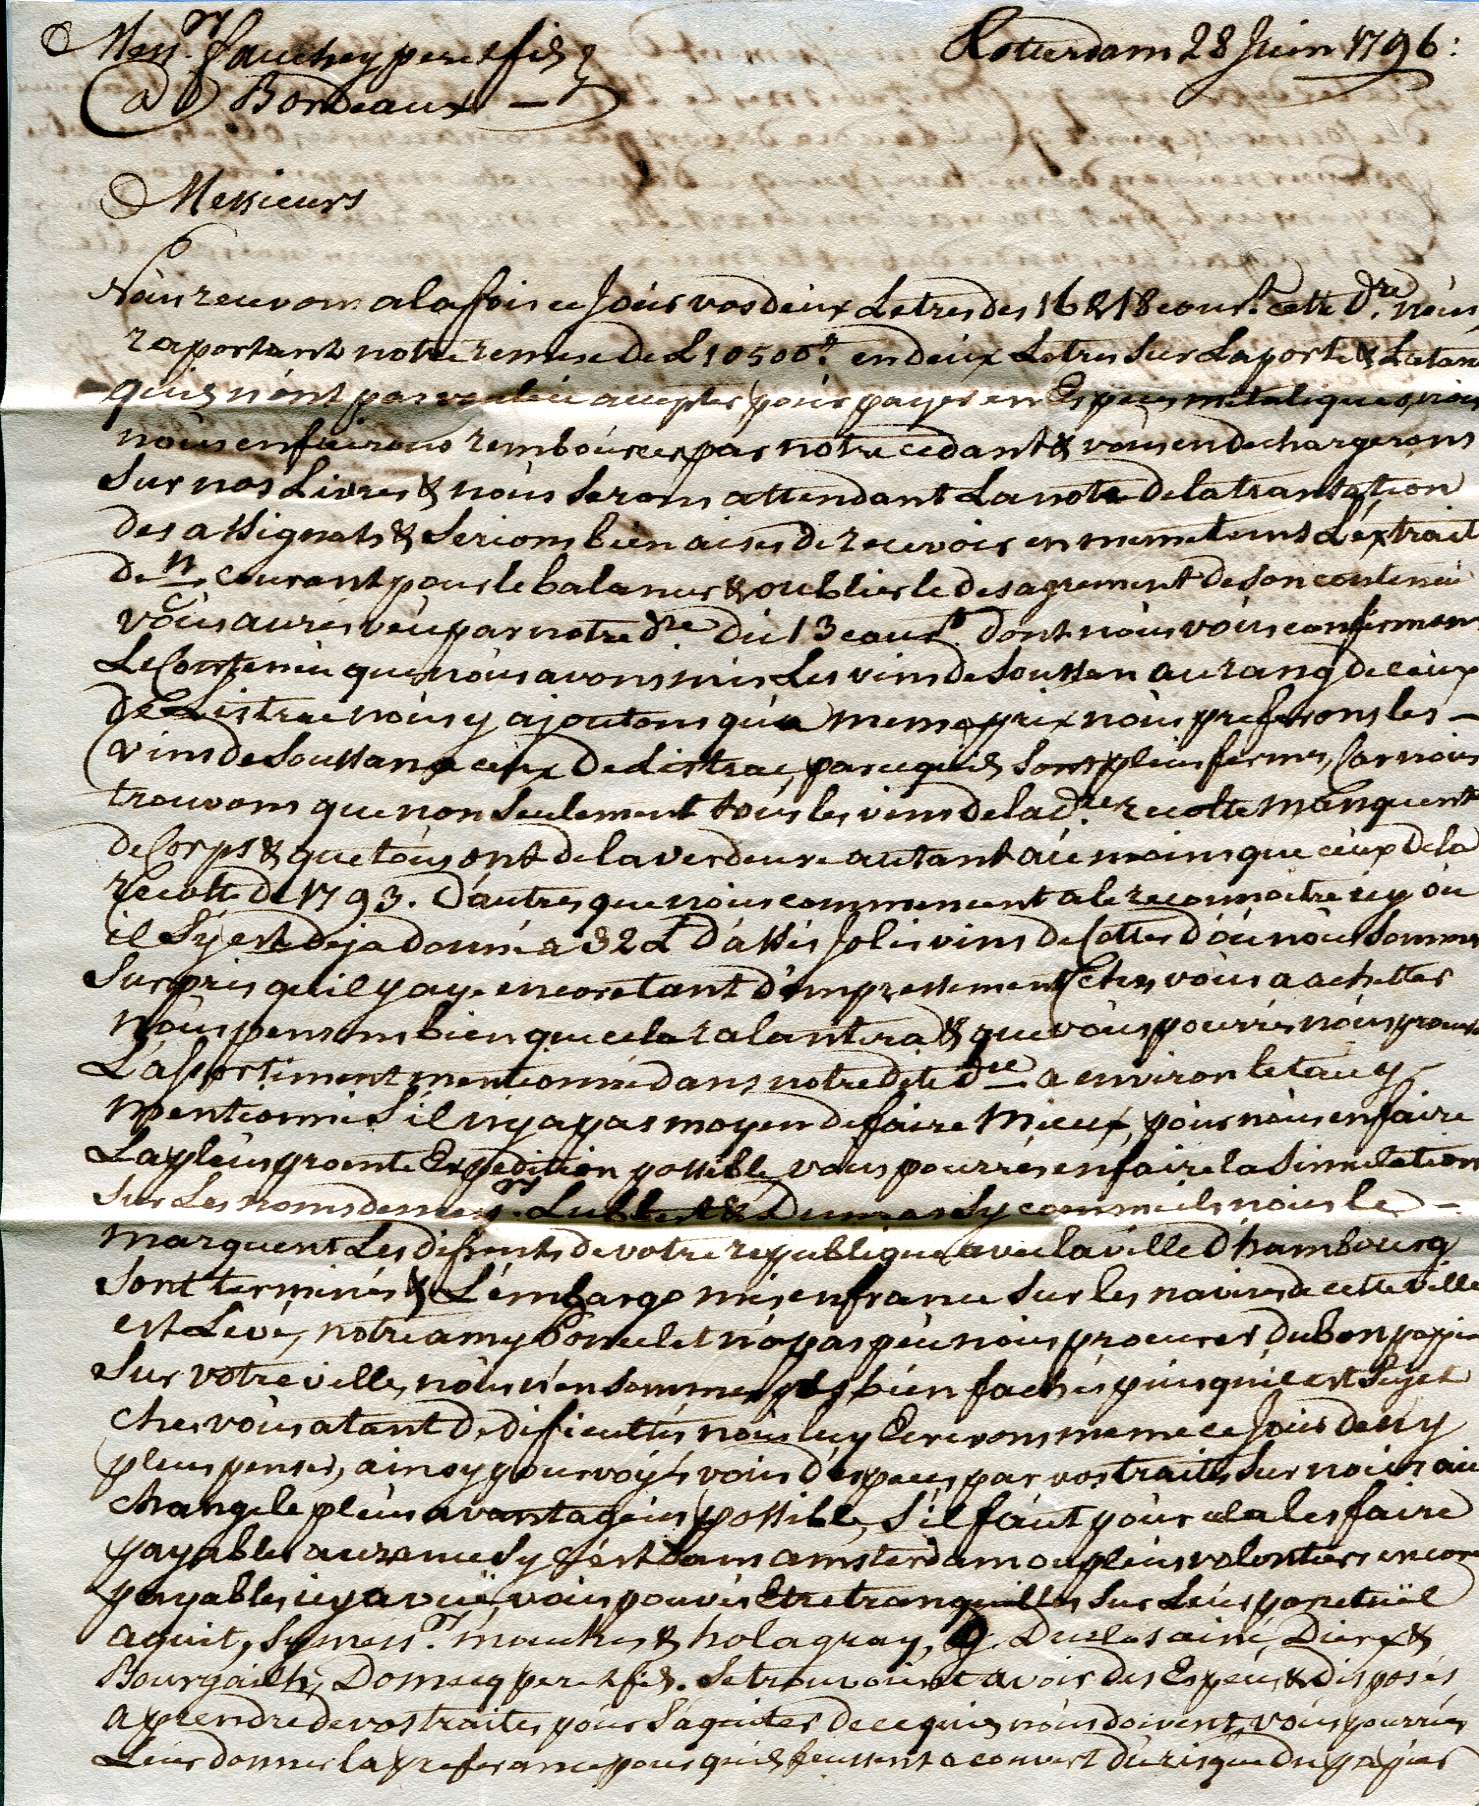 Mess.rs fauchey pere & fils
a Bordeaux
Rotterdam 28 Juin 1796:
Messieurs
Nous recevons a la fois ce Jour vos deux Letres des 16 & 18 cour.t cette d.re nous
raportant notre remise de L 10500.# en deux Letres sur Laporte & Latan
quils n'ont pas voulu accepter pour payer en Especes metaliques, nous
nous en fairons rembourcer par notre cedant & vous en dechargerons
Sur nos Livres & nous Serons attendant La note de la transation
des assignats & Serions bien aises de recevoir en meme tems L'extrait
de n/c courant pour le balancer & oublier le desagrement de Son contenu
vous aurés veu par notre d.re du 13 cour.t dont nous vous confirmons
Le Contenu que nous avons mis Les vins de Soussan au rang de ceux
de Listrac nous y ajoutons qu'a meme prix nous preferons les
vins de Soussan a ceux de Listrac, parcequils Sont plus fermes, Car nous
trouvons que non Seulement tous les vins de la d.re recolte manquent
de Corps & que tous ont de la verdeure autant au moins que ceux de la
recolte de 1793. D'autres que nous commencent a le reconnoitre icy ou
il S'y est deja donné a 32 L d'assés Jolis vins de Cottes d'ou nous Sommes
Surpris qu'il y aye encore tant d'empressement Chés vous a achetter
nous pensons bien que cela ralantira & que vous pourrés nous
L'assortiment mentionné dans notre dite d.re a environ le taux y
mentionné S'il n'y a pas moyen de faire Mieux, pour nous en faire
La plus promte Expedition possible, vous pourrés en faire la Simulation
Sur Les noms de mess.rs Lubbert & Dumas Sy comme ils nous le
marquent Les diferents de votre republique avec la ville D'hambourg
Sont terminés & L'émbargo mis en france sur les navires de cette ville
est Levé, notre amy Poncelet n'a pas peu nous procurer du Bon papier
Sur votre ville, nous n'en sommes pas bien fachés puisqu'il est Sujet
Chés vous a tant de dificultés nous luy Ecrivons meme ce Jour de n'y
plus penser, ainsy pourvoyés vous d'especes par vos traites Sur nous au
change le plus avantageux possible, S'il faut pour cela les faire
payables a usance Sy c'est dans amsterdam ou plus volontiers encore
payables icy a veüe, vous pouvés Etre tranquilles Sur Leur ponctuël
aquit, Sy mess.rs & holagray, Duclos ainé, Dierx &
Bourgailh, Domecq pere & fils. Se trouvoient avoir des Especes & disposés
a prendre de vos traites pour S'aquiter de ce quils nous doivent, vous pourriés
Leur donner la preferance pour quils feussent a couvert du risque du papier